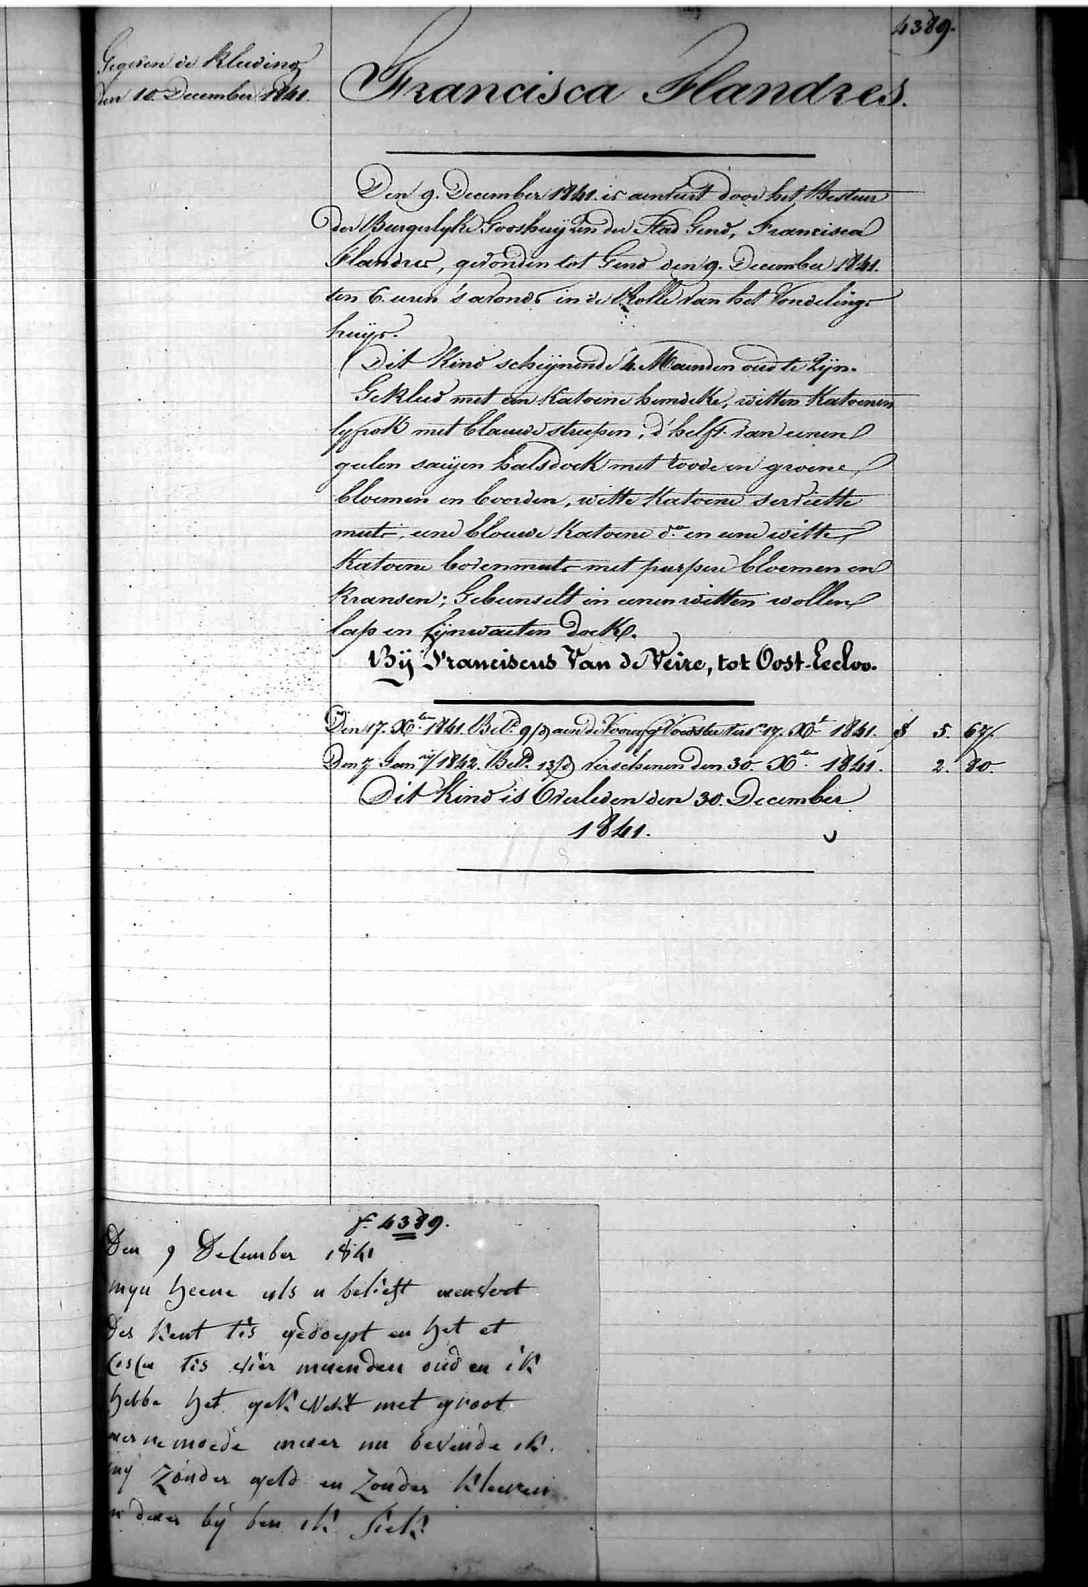 4389.
Gegeven de Kleeding
den 10 December 1841.
Francisca Flandres.
Den 9. December 1841. is aenveert door het Bestuur
der Burgerlyke Godshuyzen der Stad Gend, Francisca
Flandres, gevonden tot Gend den 9. December 1841.
ten 6. uren 's avonds in de Rolle van het Vondeling-
huys.
Dit Kind scheijnende 4. Maenden oud te Zijn.
Gekleed met een Katoene hemdeke, witten Katoenen
lyfrok met blauwe streepen, d'helft van eenen
geelen saijen halsdoek met roode en groene
bloemen en boorden, witte Katoene serviette
muts, eene blouwe Katoene do. en eene witte
Katoene bovenmuts met purpere bloemen en
Kransen; Gebunselt in eenen witten wollen
lap en lijnwaeten doek.
Bij Franciscus Van de Veire, tot Oost-Eecloo.
Den 17. Xber 1841. Bet. 9/d aen de Voorz. Voedster vers. 17. Xbr 1841. f 5. 67.
Den 7 Janrij 1842. Bet. 13/d Verschenen den 30 Xber 1841. 2. 80.
Dit Kind is Overleden den 30. December
1841.
f. 4389.
Den 9 December 1841
myn heere als u belieft
Des kent tis gedoept en het et
tis vier maenden oud en ik
hebbe het gekwekt met groot
moede maer nu bevinde ik
my zonder geld en zonder kleeren
daer by ben ik siek